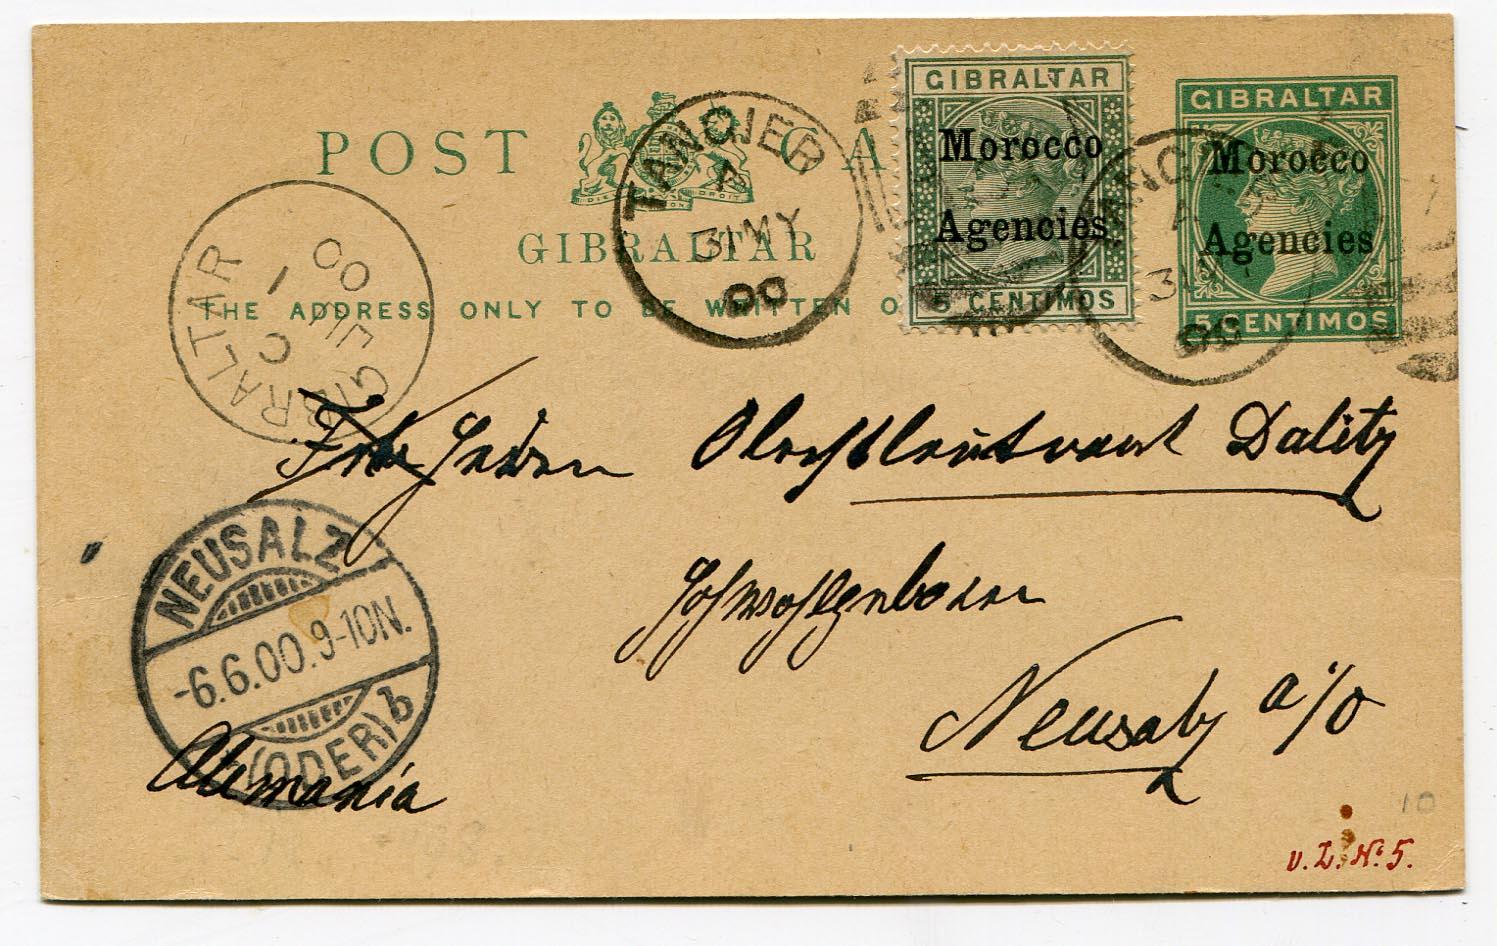 POST CA
GIBRALTAR
THE ADDRESS ONLY TO BE WRITTEN O
GIBRALTAR
Morocco
Agencies
5 CENTIMOS
GIBRALTAR
Morocco
Agencies
5 CENTIMOS
TANGIER
A
31 MY
00
A
31
00
GIBRALTAR
C
JU 1
00
Oberstleutnant Dalitz
Hochwohlgeboren
Neusalz a/O
NEUSALZ
-6.6.00.9-10N.
(ODER) b
Alemania
10
v. L. No 5.